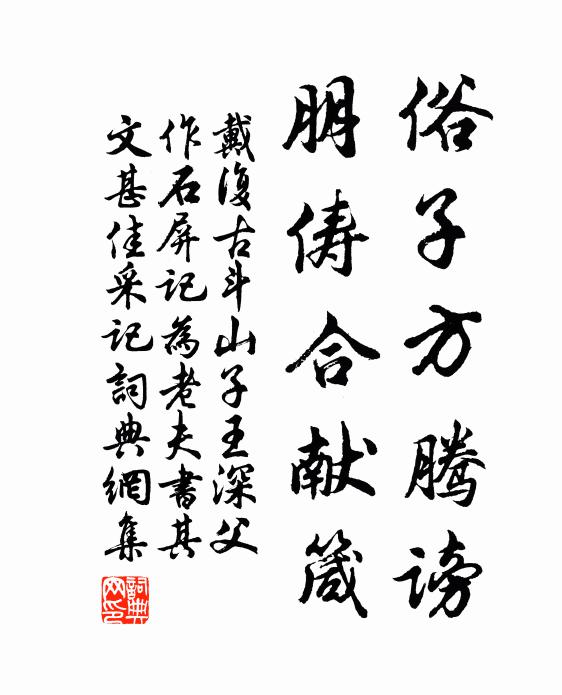 俗子方騰謗
朋儔合献箴
戴復古斗山子王深父
作石屏記為老夫書其
文甚佳采記詞典網集
詞典网印